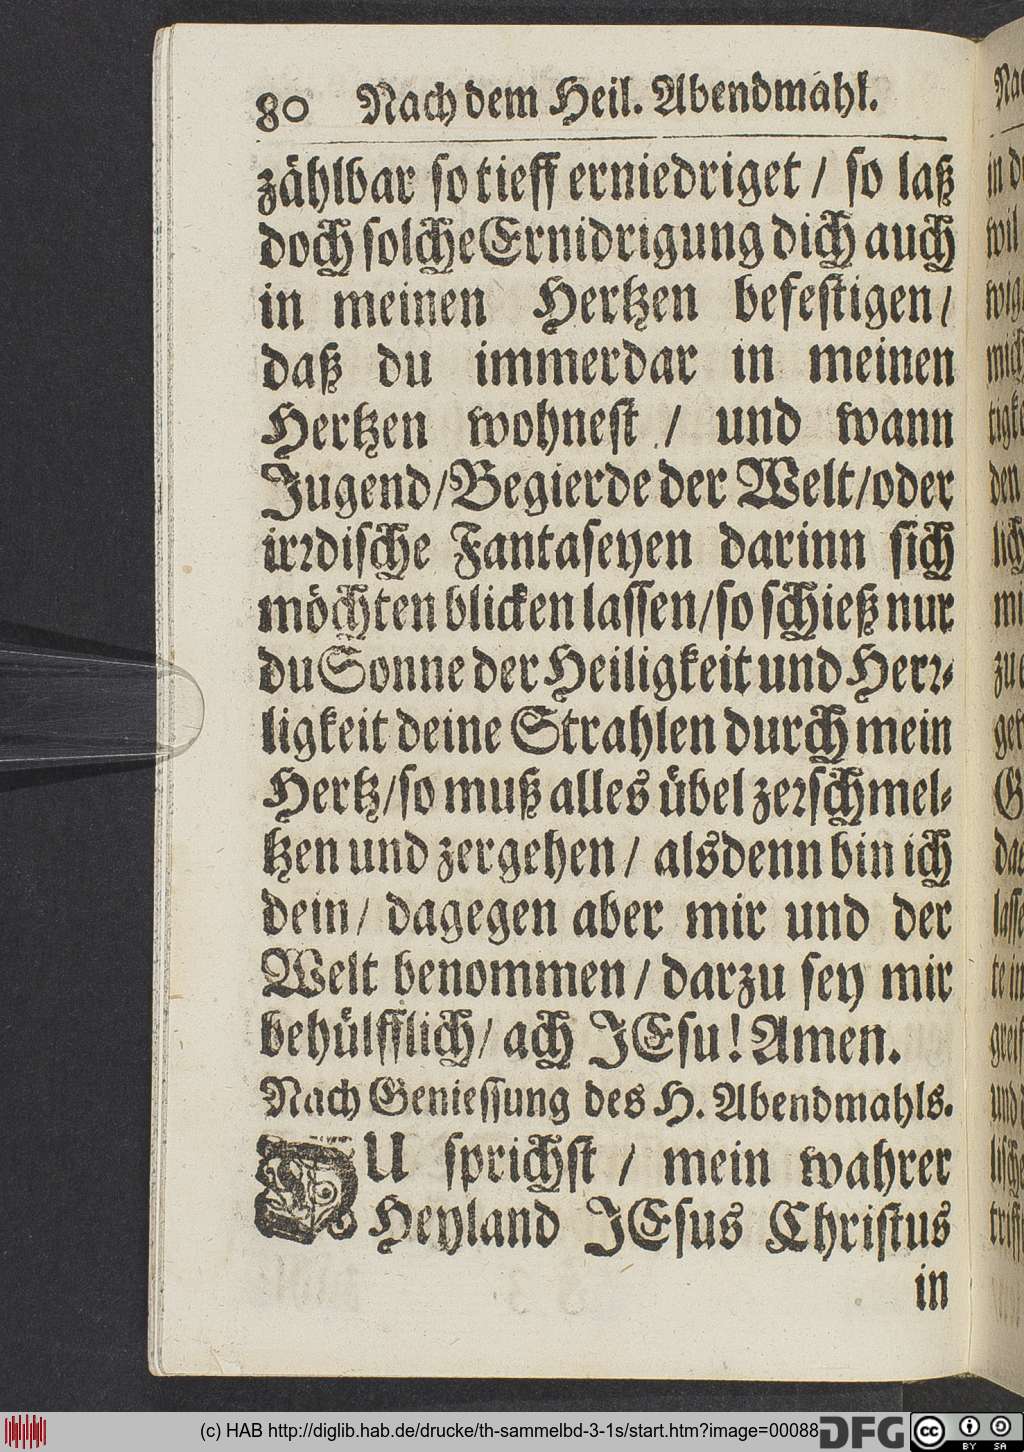 80 Nach dem Heil. Abendmahl.
zählbar so tieff erniedriget / so laß
doch solche Ernidrigung dich auch
in meinen Hertzen befestigen /
daß du immerdar in meinen
Hertzen wohnest / und wann
Jugend / Begierde der Welt / oder
irꝛdische Fantaseyen darinn sich
möchten blicken lassen / so schieß nur
du Sonne der Heiligkeit und Herꝛ-
ligkeit deine Strahlen durch mein
Hertz / so muß alles übel zeꝛschmel-
tzen und zergehen / alsdenn bin ich
dein / dagegen aber mir und der
Welt benommen / darzu sey mir
behülfflich / ach JEsu! Amen.
Nach Geniessung des H. Abendmahls.
DU sprichst / mein wahrer
Heyland JEsus Christus
in
(c) HAB http://diglib.hab.de/drucke/th-sammelbd-3-1s/start.htm?image=00088
DFG
cc BY SA